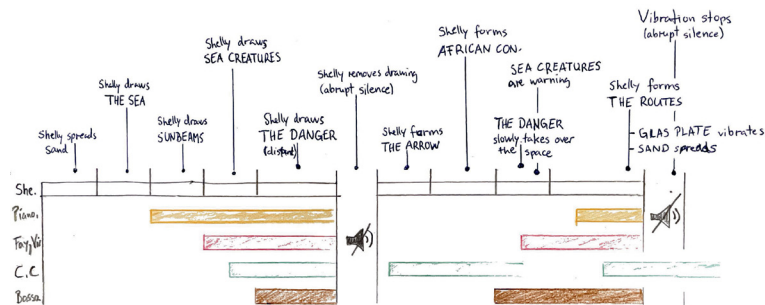 Shelly spreads
Sand
Shelly draws
THE SEA
Shelly draws
SUNBEAMS
Shelly draws
SEA CREATURES
Shelly draws
THE DANGER
(distant)
Shelly removes drawing
(abrupt silence)
Shelly forms
THE ARROW
Shelly forms
AFRICAN CON.
SEA CREATURES
are warning
THE DANGER
slowly takes over
the space
Shelly forms
THE ROUTES
- GLAS PLATE vibrates
- SAND spreads
Vibration stops
(abrupt silence)
She.
Piano,
C.C
Bossa